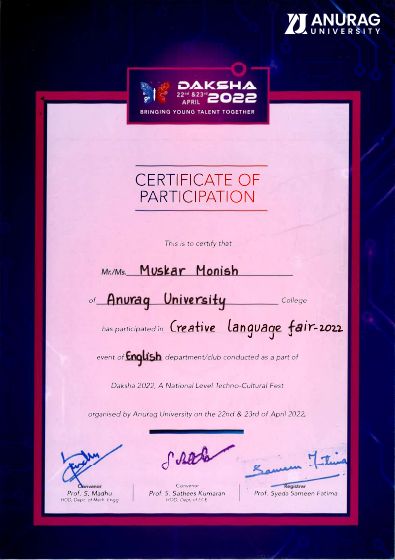 ANURAG
UNIVERSITY
DAKSHA
22nd & 23rd
APRIL
2022
BRINGING YOUNG TALENT TOGETHER
CERTIFICATE OF
PARTICIPATION
This is to certify that
Mr./Ms. Muskar Monish
of Anurag University College
has participated in Creative language fair-2022
event of English department/club conducted as a part of
Daksha 2022, A National Level Techno-Cultural Fest
organised by Anurag University on the 22nd & 23rd of April 2022.
Convenor
Prof. S. Madhu
HOD, Dept. of Mech. Engg.
Convenor
Prof. S. Sathees Kumaran
HOD, Dept. of ECE
Sameen Fatima
Registrar
Prof. Syeda Sameen Fatima